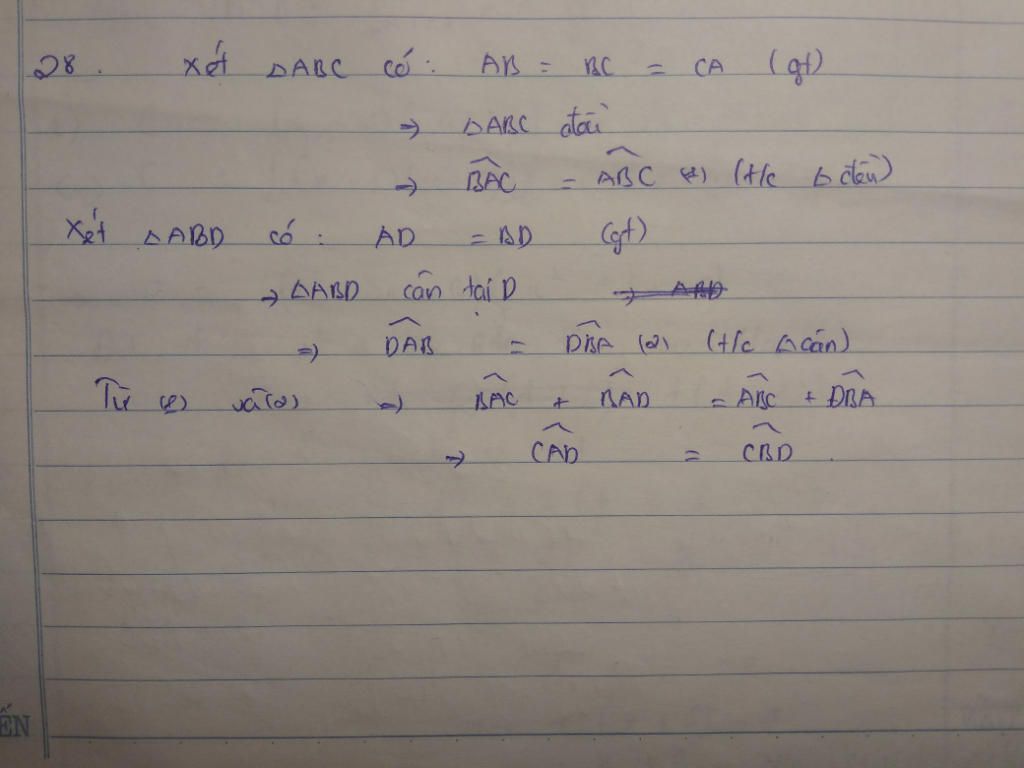 28. Xét △ABC có: AB = BC = CA (gt)
⇒ △ABC đều
⇒ \widehat{BAC} = \widehat{ABC} (1) (t/c △ đều)
Xét △ABD có: AD = BD (gt)
⇒ △ABD cân tại D ⇒ ABD
⇒ \widehat{DAB} = \widehat{DBA} (2) (t/c △ cân)
Từ (1) và (2) ⇒ \widehat{BAC} + \widehat{BAD} = \widehat{ABC} + \widehat{DBA}
⇒ \widehat{CAD} = \widehat{CBD}.
ẾN